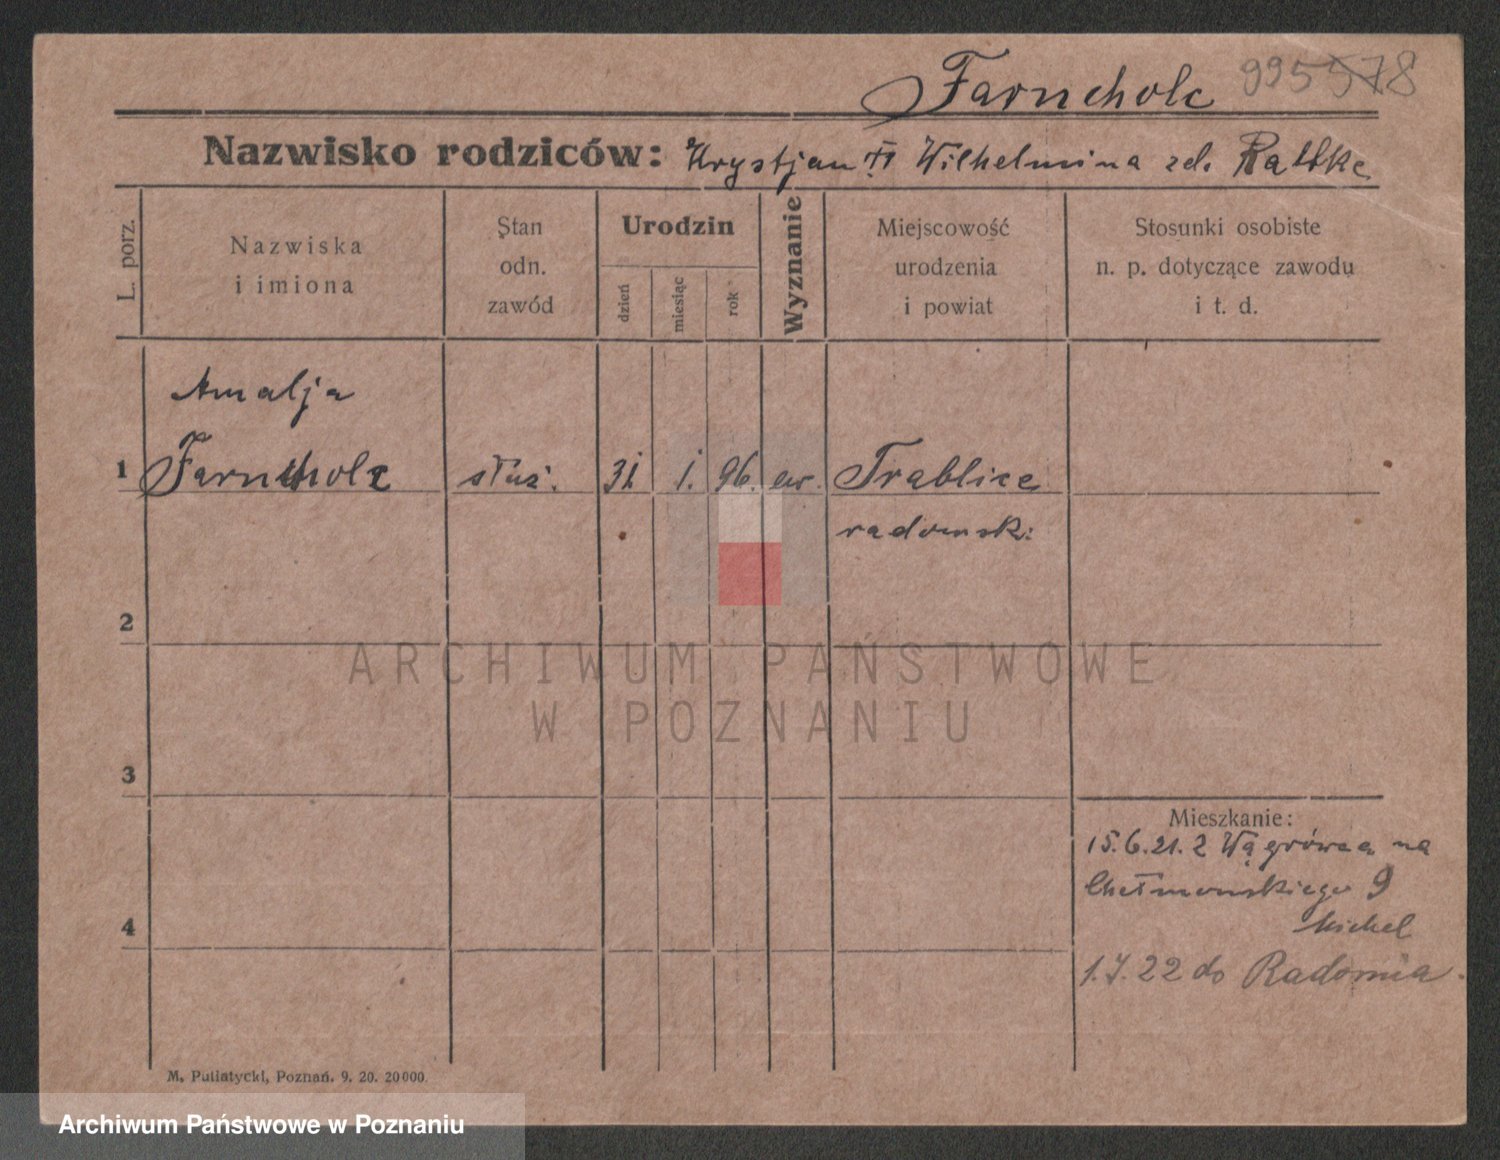 Farncholc 995578
Nazwisko rodziców: Krystjan Wilhelmina zd. Rattke
L. porz.
Nazwiska
i imiona
Stan
odn.
zawód
Urodzin
dzień
miesiąc
rok
Wyznanie
Miejscowość
urodzenia
i powiat
Stosunki osobiste
n. p. dotyczące zawodu
i t. d.
Amalja
1 Farncholc służ. 31. 1. 96. ew. Trablice
radomski
2
ARCHIWUM PAŃSTWOWE
W POZNANIU
3
Mieszkanie:
15.6.21. z Wągrówca na
Chełmonskiego 9
Michel
4
1.7.22 do Radomia.
M. Putiatycki, Poznań. 9. 20. 20000.
Archiwum Państwowe w Poznaniu